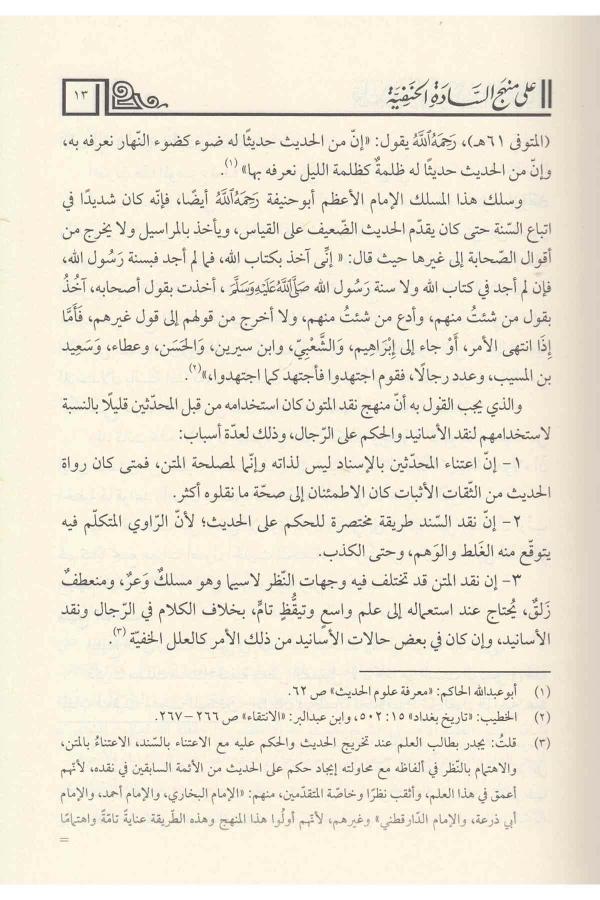 على منهج السَّادَة الحَنَفِيَّة
١٣
(المتوفى ٦١هـ)، رَحِمَهُ اللَّهُ يقول: «إنّ من الحديث حديثًا له ضوء كضوء النّهار نعرفه به،
وإنّ من الحديث حديثًا له ظلمةٌ كظلمة الليل نعرفه بها»(١).
وسلك هذا المسلك الإمام الأعظم أبوحنيفة رَحِمَهُ اللَّهُ أيضًا، فإنّه كان شديدًا في
اتباع السّنة حتى كان يقدّم الحديث الضّعيف على القياس، ويأخذ بالمراسيل ولا يخرج من
أقوال الصّحابة إلى غيرها حيث قال: « إنّى آخذ بكتاب الله، فما لم أجد فبسنة رَسُول الله،
فإن لم أجد في كتاب الله ولا سنة رَسُول الله صَلَّى اللَّهُ عَلَيْهِ وَسَلَّمَ، أخذت بقول أصحابه، آخُذُ
بقول من شئتُ منهم، وأدع من شئتُ منهم، ولا أخرج من قولهم إلى قول غيرهم، فَأَمَّا
إِذَا انتهى الأمر، أَوْ جاء إلى إِبْرَاهِيم، وَالشَّعْبِيّ، وابن سيرين، وَالحَسَن، وعطاء، وَسَعِيد
بن المسيب، وعدد رجالًا، فقوم اجتهدوا فأجتهد كما اجتهدوا،»(٢).
والذي يجب القول به أنّ منهج نقد المتون كان استخدامه من قبل المحدّثين قليلًا بالنسبة
لاستخدامهم لنقد الأسانيد والحكم على الرّجال، وذلك لعدّة أسباب:
١- إنّ اعتناء المحدّثين بالإسناد ليس لذاته وإنّما لمصلحة المتن، فمتى كان رواة
الحديث من الثّقات الأثبات كان الاطمئنان إلى صحّة ما نقلوه أكثر.
٢- إنّ نقد السّند طريقة مختصرة للحكم على الحديث؛ لأنّ الرّاوي المتكلّم فيه
يتوقّع منه الغَلط والوَهم، وحتى الكذب.
٣- إن نقد المتن قد تختلف فيه وجهات النّظر لاسيما وهو مسلكٌ وَعرٌ، ومنعطفٌ
زَلقٌ، يُحتاج عند استعماله إلى علم واسعٍ وتيقُّظٍ تامٍّ، بخلاف الكلام في الرّجال ونقد
الأسانيد، وإن كان في بعض حالات الأسانيد من ذلك الأمر كالعلل الخفيّة(٣).
(١) أبوعبدالله الحاكم: «معرفة علوم الحديث» ص ٦٢.
(٢) الخطيب: «تاريخ بغداد» ١٥: ٥٠٢، وابن عبدالبر: «الانتقاء» ص ٢٦٦-٢٦٧.
(٣) قلتُ: يجدر بطالب العلم عند تخريج الحديث والحكم عليه مع الاعتناء بالسّند، الاعتناءُ بالمتن،
والاهتمام بالنّظر في ألفاظه مع محاولته إيجاد حكم على الحديث من الأئمة السابقين في نقده، لأنّهم
أعمق في هذا العلم، وأثقب نظرًا وخاصّة المتقدّمين، منهم: «الإمام البخاري، والإمام أحمد، والإمام
أبي ذرعة، والإمام الدّارقطني» وغيرهم، لأنّهم أولُوا هذا المنهج وهذه الطّريقة عنايةً تامّةً واهتمامًا
=